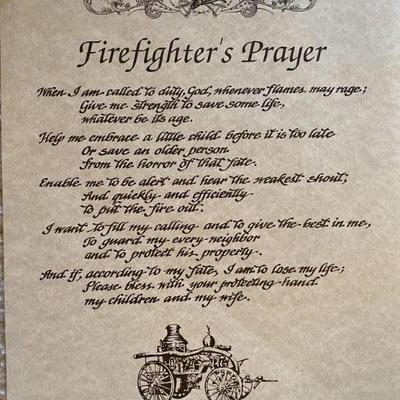 Firefighter's Prayer
When I am called to duty, God, whenever flames may rage;
Give me strength to save some life,
whatever be its age.
Help me embrace a little child before it is too late
Or save an older person
from the horror of that fate.
Enable me to be alert and hear the weakest shout;
And quickly and efficiently
to put the fire out.
I want to fill my calling and to give the best in me,
To guard my every neighbor
and to protect his property.
And if, according to my fate, I am to lose my life;
Please bless with your protecting hand
my children and my wife.